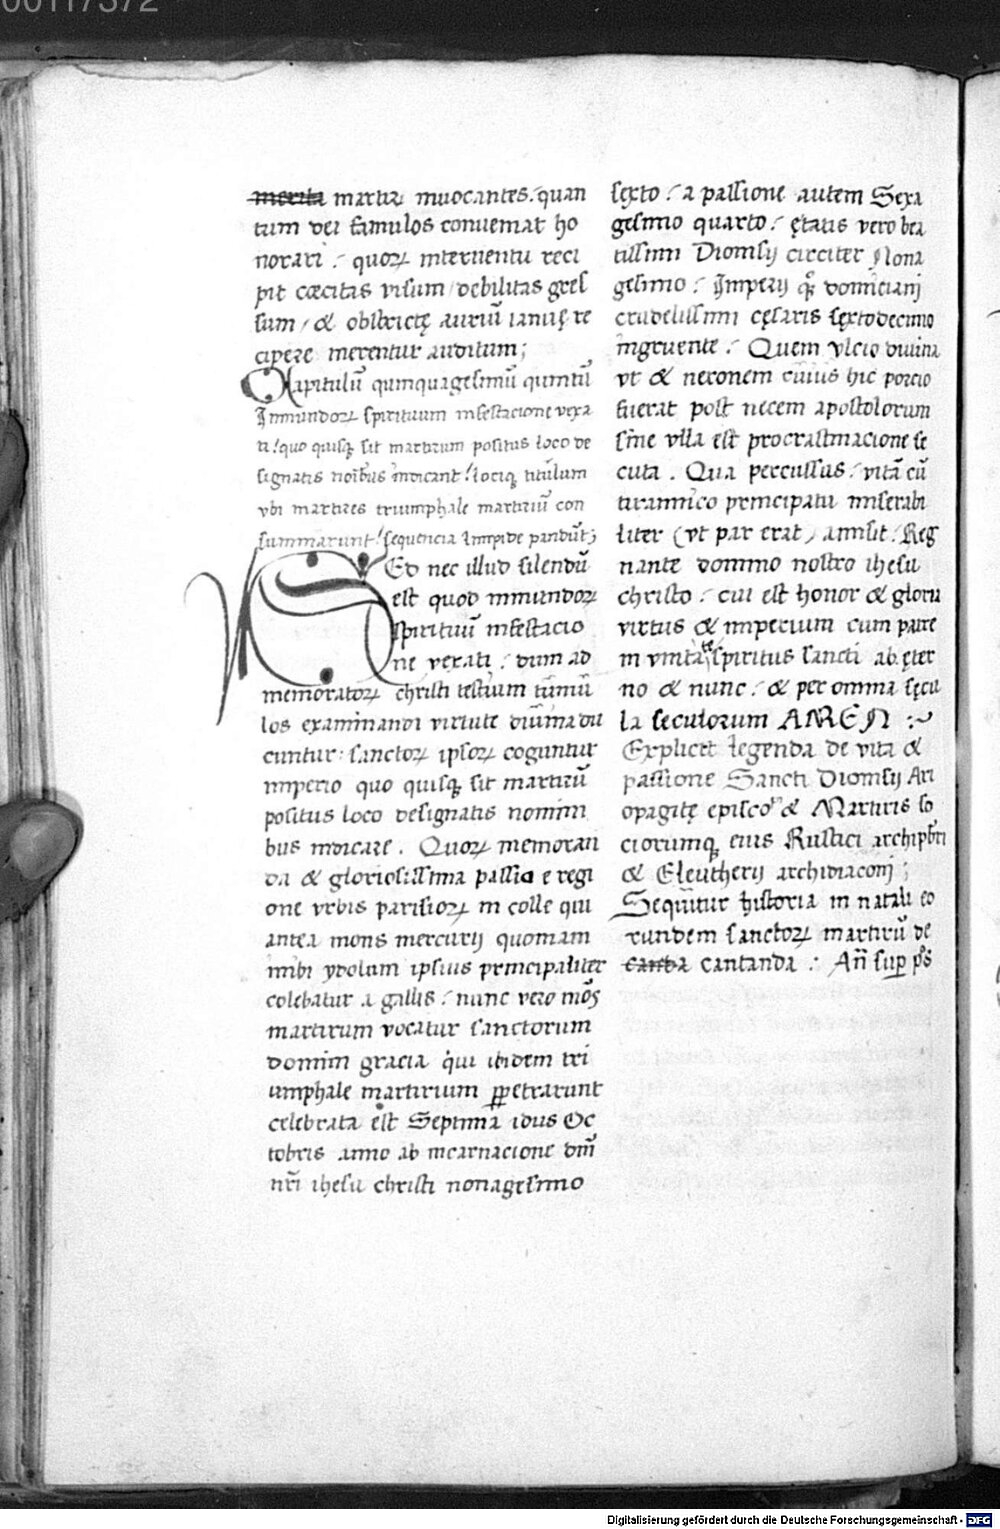 00117372
merita martirꝝ inuocantes / quan
tum dei famulos conueniat ho
norari : quoꝝ interuentu reci
pit cæcitas visum / debilitas gres
sum / & obstrictę auriū ianuę re
cipere merentur auditum ;
Capitulū quinquagesimū quintū
Inmundoꝝ spirituum infestacione vexa
ti / quo quisqꝫ sit martirum positus loco de
signatis noībus indicant / locique titulum
vbi martires triumphale martiriū con
summarunt / sequencia limpide pandūt ;
Sed nec illud silendū
est quod inmundoꝝ
spirituū infestacio
ne vexati : dum ad
memoratoꝝ christi testium tumu
los examinandi virtute diuina du
cuntur : sanctoꝝ ipsoꝝ coguntur
imperio quo quisqꝫ sit martirū
positus loco designatis nomini
bus indicare . Quoꝝ memoran
da & gloriosissima passio e regi
one vrbis parisioꝝ in colle qui
antea mons mercurij quoniam
inibi ydolum ipsius principaliter
colebatur a gallis : nunc vero mōs
martirum vocatur sanctorum
domini gracia qui ibidem tri
umphale martirium ꝑpetrarunt
celebrata est Septima idus Oc
tobris anno ab incarnacione dnī
nrī ihesu christi nonagesimo
sexto : a passione autem Sexa
gesimo quarto : ętatis vero bea
tissimi Dionisij circiter Nona
gesimo : Imperij qꝫ domiciani
crudelissimi cęsaris sextodecimo
ingruente : Quem vlcio diuina
vt & neronem cuius hic porcio
fuerat post necem apostolorum
sine vlla est procrastinacione se
cuta . Qua percussus : vitā cū
tirannico principatu miserabi
liter ( vt par erat ) amisit : Reg
nante domino nostro ihesu
christo : cui est honor & gloria
virtus & imperium cum patre
in vnitate spiritus sancti ab ęter
no & nunc : & per omnia sęcu
la seculorum AMEN :~
Explicit legenda de vita &
passione Sancti Dionisij Ari
opagitę episcoⁱ & Martiris so
ciorumqꝫ eius Rustici archipbr̄i
& Eleutherij archidiaconi ;
Sequitur historia in natali eo
rundem sanctoꝝ martirū de
canta cantanda : Añ suꝑ pōs
Digitalisierung gefördert durch die Deutsche Forschungsgemeinschaft - DFG